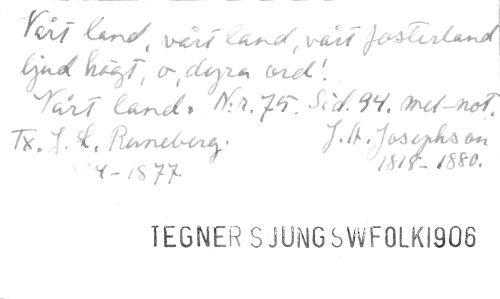 Vårt land, vårt land, vårt fosterland
ljud högt, o, dyra ord!
Vårt land. N:r. 75. Sid. 94. mel-not.
Tx. J. L. Runeberg. J. A. Josephson
4-1877. 1818-1880.
TEGNER SJUNG SWFOLK1906